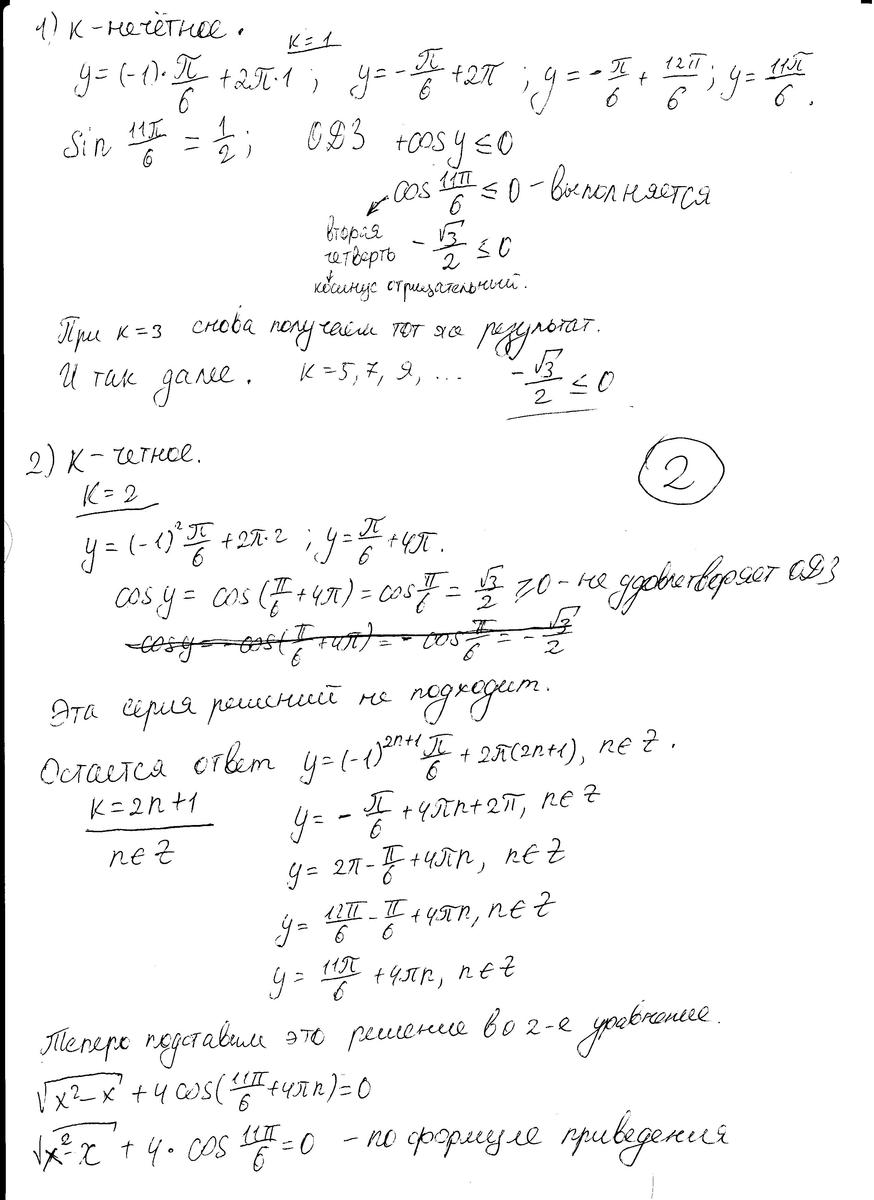 1) К-нечётное.
K=1
y=(-1)·π/6+2π·1; y=-π/6+2π; y=-π/6+12π/6; y=11π/6.
Sin 11π/6 = 1/2; ОДЗ +cos y ≤ 0
cos 11π/6 ≤ 0 - выполняется
вторая
четверть -√3/2 ≤ 0
косинус отрицательный.
При к=3 снова получаем тот же результат.
И так далее. K=5, 7, 9, ... -√3/2 ≤ 0
2) К-четное.
2
K=2
y=(-1)²π/6+2π·2; y=π/6+4π.
cos y = cos(π/6+4π)=cos π/6 = √3/2 ≥0 - не удовлетворяет ОДЗ
-cos y = -cos(π/6+4π)= - cos π/6 = -√3/2
Эта серия решений не подходит.
Остается ответ y=(-1)^(2n+1) π/6 + 2π(2n+1), n∈Z.
K=2n+1
n∈Z
y= - π/6 +4πn+2π, n∈Z
y= 2π-π/6+4πn, n∈Z
y= 12π/6 - π/6 +4πn, n∈Z
y= 11π/6 +4πn, n∈Z
Теперь подставим это решение во 2-е уравнение.
√(x²-x) + 4 cos(11π/6+4πn)=0
√(x²-x) + 4· cos 11π/6=0 - по формуле приведения